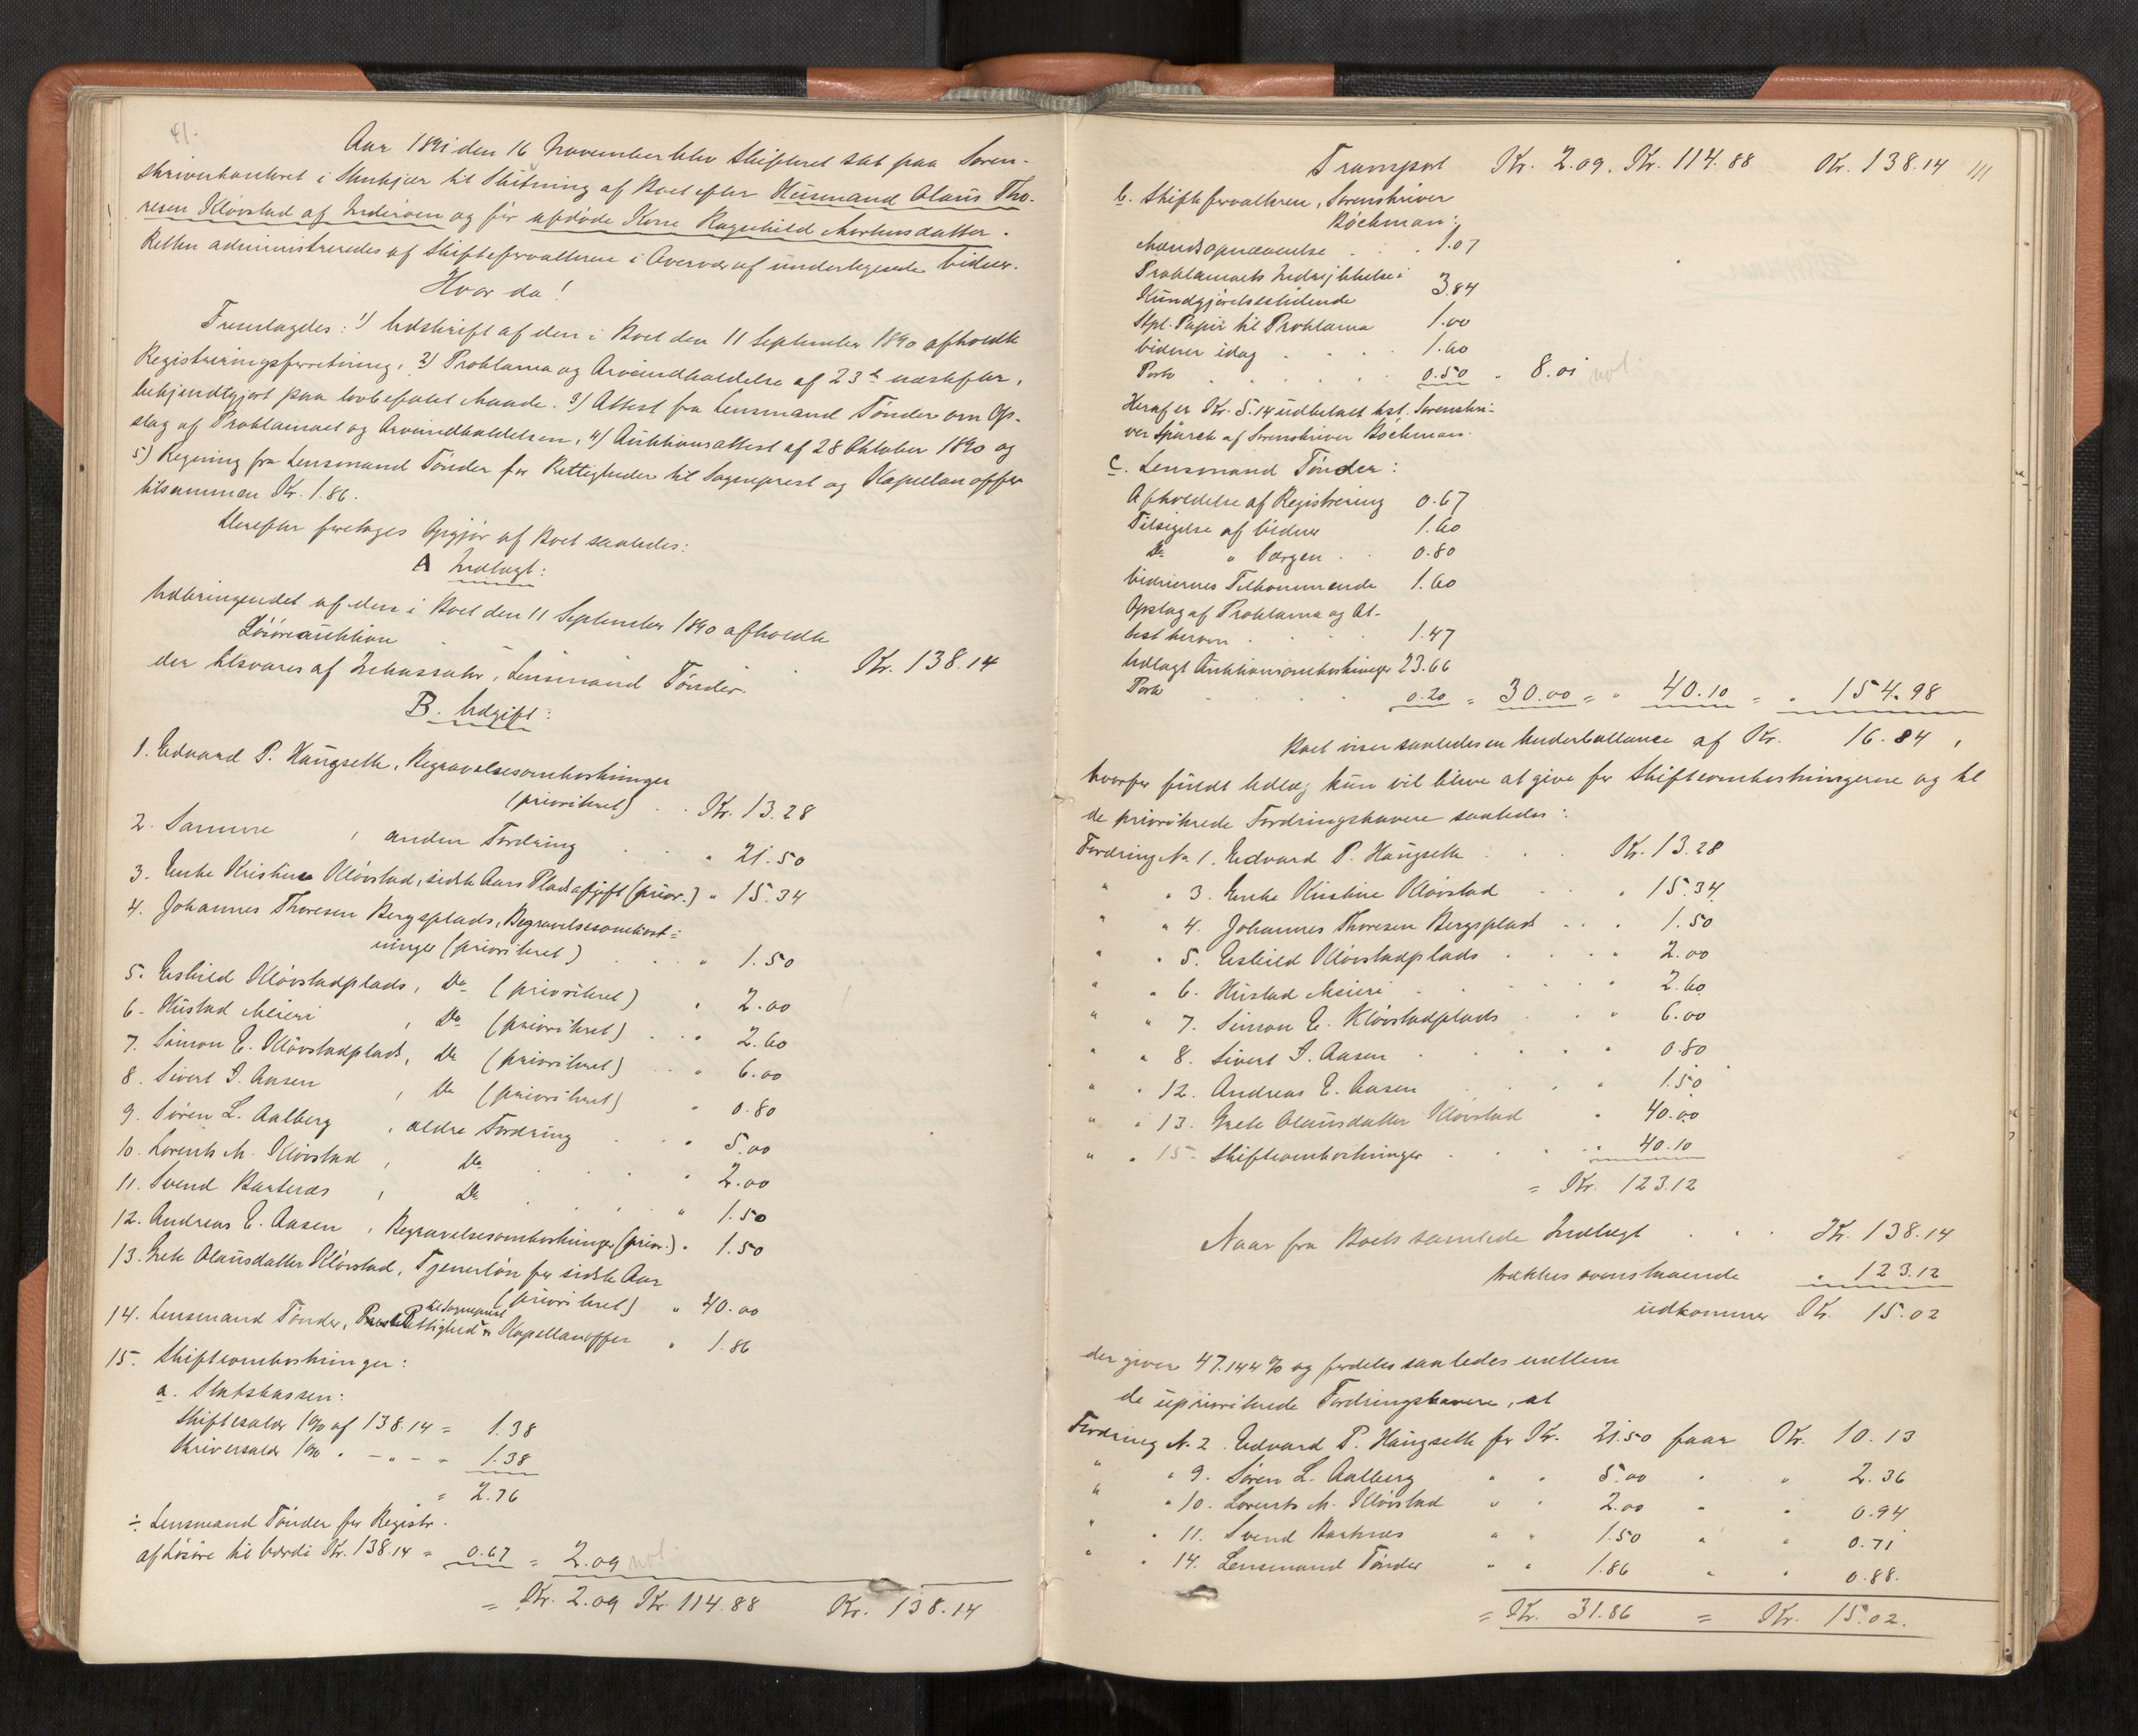 41.
Aar 1891 den 16 November blev Skifteret sat paa Soren-
skriverkontoret i Stenkjær til Slutning af Boet efter Husmand Olaus Tho-
resen Kløvstad af Inderøen og før afdøde Kone Ragnhild Mortensdatter.
Retten administreredes af Skifteforvalteren i Overvær af undertegnede Vidner.
Hvor da!
Fremlagdes: 1) Udskrift af den i Boet den 11 September 1890 afholdte
Registreringsforretning, 2) Proklama og Arveindkaldelse af 23de næstefter,
bekjendtgjort paa lovbefalet Maade. 3) Attest fra Lensmand Tønder om Op-
slag af Proklamaet og Arveindkaldelsen, 4) Auktionsattest af 28 Oktober 1890 og
5) Regning fra Lensmand Tønder for Rettigheder til Sogneprest og Kapellanoffer
tilsammen Kr. 1.86.
Herefter foretoges Opgjør af Boet saaledes:
A Indtægt:
Udbringendet af den i Boet den 11 September 1890 afholdte
Løsøreauktion
der tilsvares af Inkassator, Lensmand Tønder. Kr. 138.14
B. Udgift:
1. Edvard P. Haugseth, Begravelsesomkostninger
(prioriteret) . . Kr. 13.28
2. Samme , anden Fordring . . " 21.50
3. Enke Kristine Kløvstad, sidste Aars Pladsafgift (prior.) " 15.34
4. Johannes Thoresen Bergsplads, Begravelsesomkost=
ninger (prioriteret) . . . " 1.50
5. Eskild Kløvstadplads, Do (prioriteret) " 2.00
6. Hustad Meieri , Do (prioriteret) . . " 2.60
7. Simon E. Kløvstadplads, Do (prioriteret) . . " 6.00
8. Sivert I. Aasen , Do (prioriteret) " 0.80
9. Søren L. Aalberg , ældre Fordring . . " 5.00
10. Lorents M. Kløvstad , Do . . . " 2.00
11. Svend Bartnæs , Do . . . " 1.50
12. Andreas E. Aasen , Begravelsesomkostninger (prior.) " 1.50
13. Grete Olausdatter Kløvstad, Tjenerløn for sidste Aar
(prioriteret) " 40.00
til Sogneprest
14. Lensmand Tønder, Rettighed & Kapellanoffer " 1.86
15. Skifteomkostninger:
a. Statskassen:
Skiftesalær 1% af 138.14 = 1.38
Skriversalær 1% " - " - = 1.38
= 2.76
÷ Lensmand Tønder for Registr.
af Løsøre til Værdi Kr. 138.14 = 0.67 = 2.09 not
= Kr. 2.09 Kr. 114.88 Kr. 138.14
Transport Kr. 2.09. Kr. 114.88 Kr. 138.14
b. Skifteforvalteren, Sorenskriver
Bøckman:
Mandsopnævnelse . . 1.07
Proklamaets Indrykkelse i
Kundgjørelsestidende 3.84
Stpl. Papir til Proklama 1.00
Vidner idag . . . 1.60
Porto . . . . 0.50 " 8.01 not
Heraf er Kr. 5.14 udbetalt kst. Sorenskri-
ver Sparck af Sorenskriver Bøckman.
c. Lensmand Tønder:
Afholdelse af Registrering 0.67
Tilsigelse af Vidner 1.60
Do " Værgen . . 0.80
Vidnernes Tilkommende 1.60
Opslag af Proklama og At-
test herom . . . 1.47
Udlagt Auktionsomkostninger 23.66
Porto . . . 0.20 = 30.00 = " 40.10 = " 154.98
Boet viser saaledes en Underballance af Kr. 16.84,
hvorfor fuldt Udlæg kun vil blive at give for Skifteomkostningerne og til
de prioriterede Fordringshavere saaledes:
Fordring No 1. Edvard P. Haugseth . . . Kr. 13.28
" " 3. Enke Kristine Kløvstad . . " 15.34
" " 4. Johannes Thoresen Bergsplads . . . 1.50
" " 5. Eskild Kløvstadplads . . . " 2.00
" " 6. Hustad Meieri . . . . " 2.60
" " 7. Simon E. Kløvstadplads . . " 6.00
" " 8. Sivert I. Aasen . . . . " 0.80
" " 12. Andreas E. Aasen . . . " 1.50
" " 13. Grete Olausdatter Kløvstad " 40.00
" " 15. Skifteomkostninger . . . " 40.10
= Kr. 123.12
Naar fra Boets samlede Indtægt . . . Kr. 138.14
trækkes ovenstaaende " 123.12
udkommer Kr. 15.02
der giver 47.144 % og fordeles saaledes mellem
de uprioriterede Fordringshavere, at
Fordring No 2. Edvard P. Haugseth for Kr. 21.50 faar Kr. 10.13
" " 9. Søren L. Aalberg " " 5.00 " " 2.36
" " 10. Lorents M. Kløvstad " " 2.00 " " 0.94
" " 11. Svend Bartnæs " " 1.50 " " 0.71
" " 14. Lensmand Tønder " " 1.86 " " 0.88.
= Kr. 31.86 = Kr. 15.02.